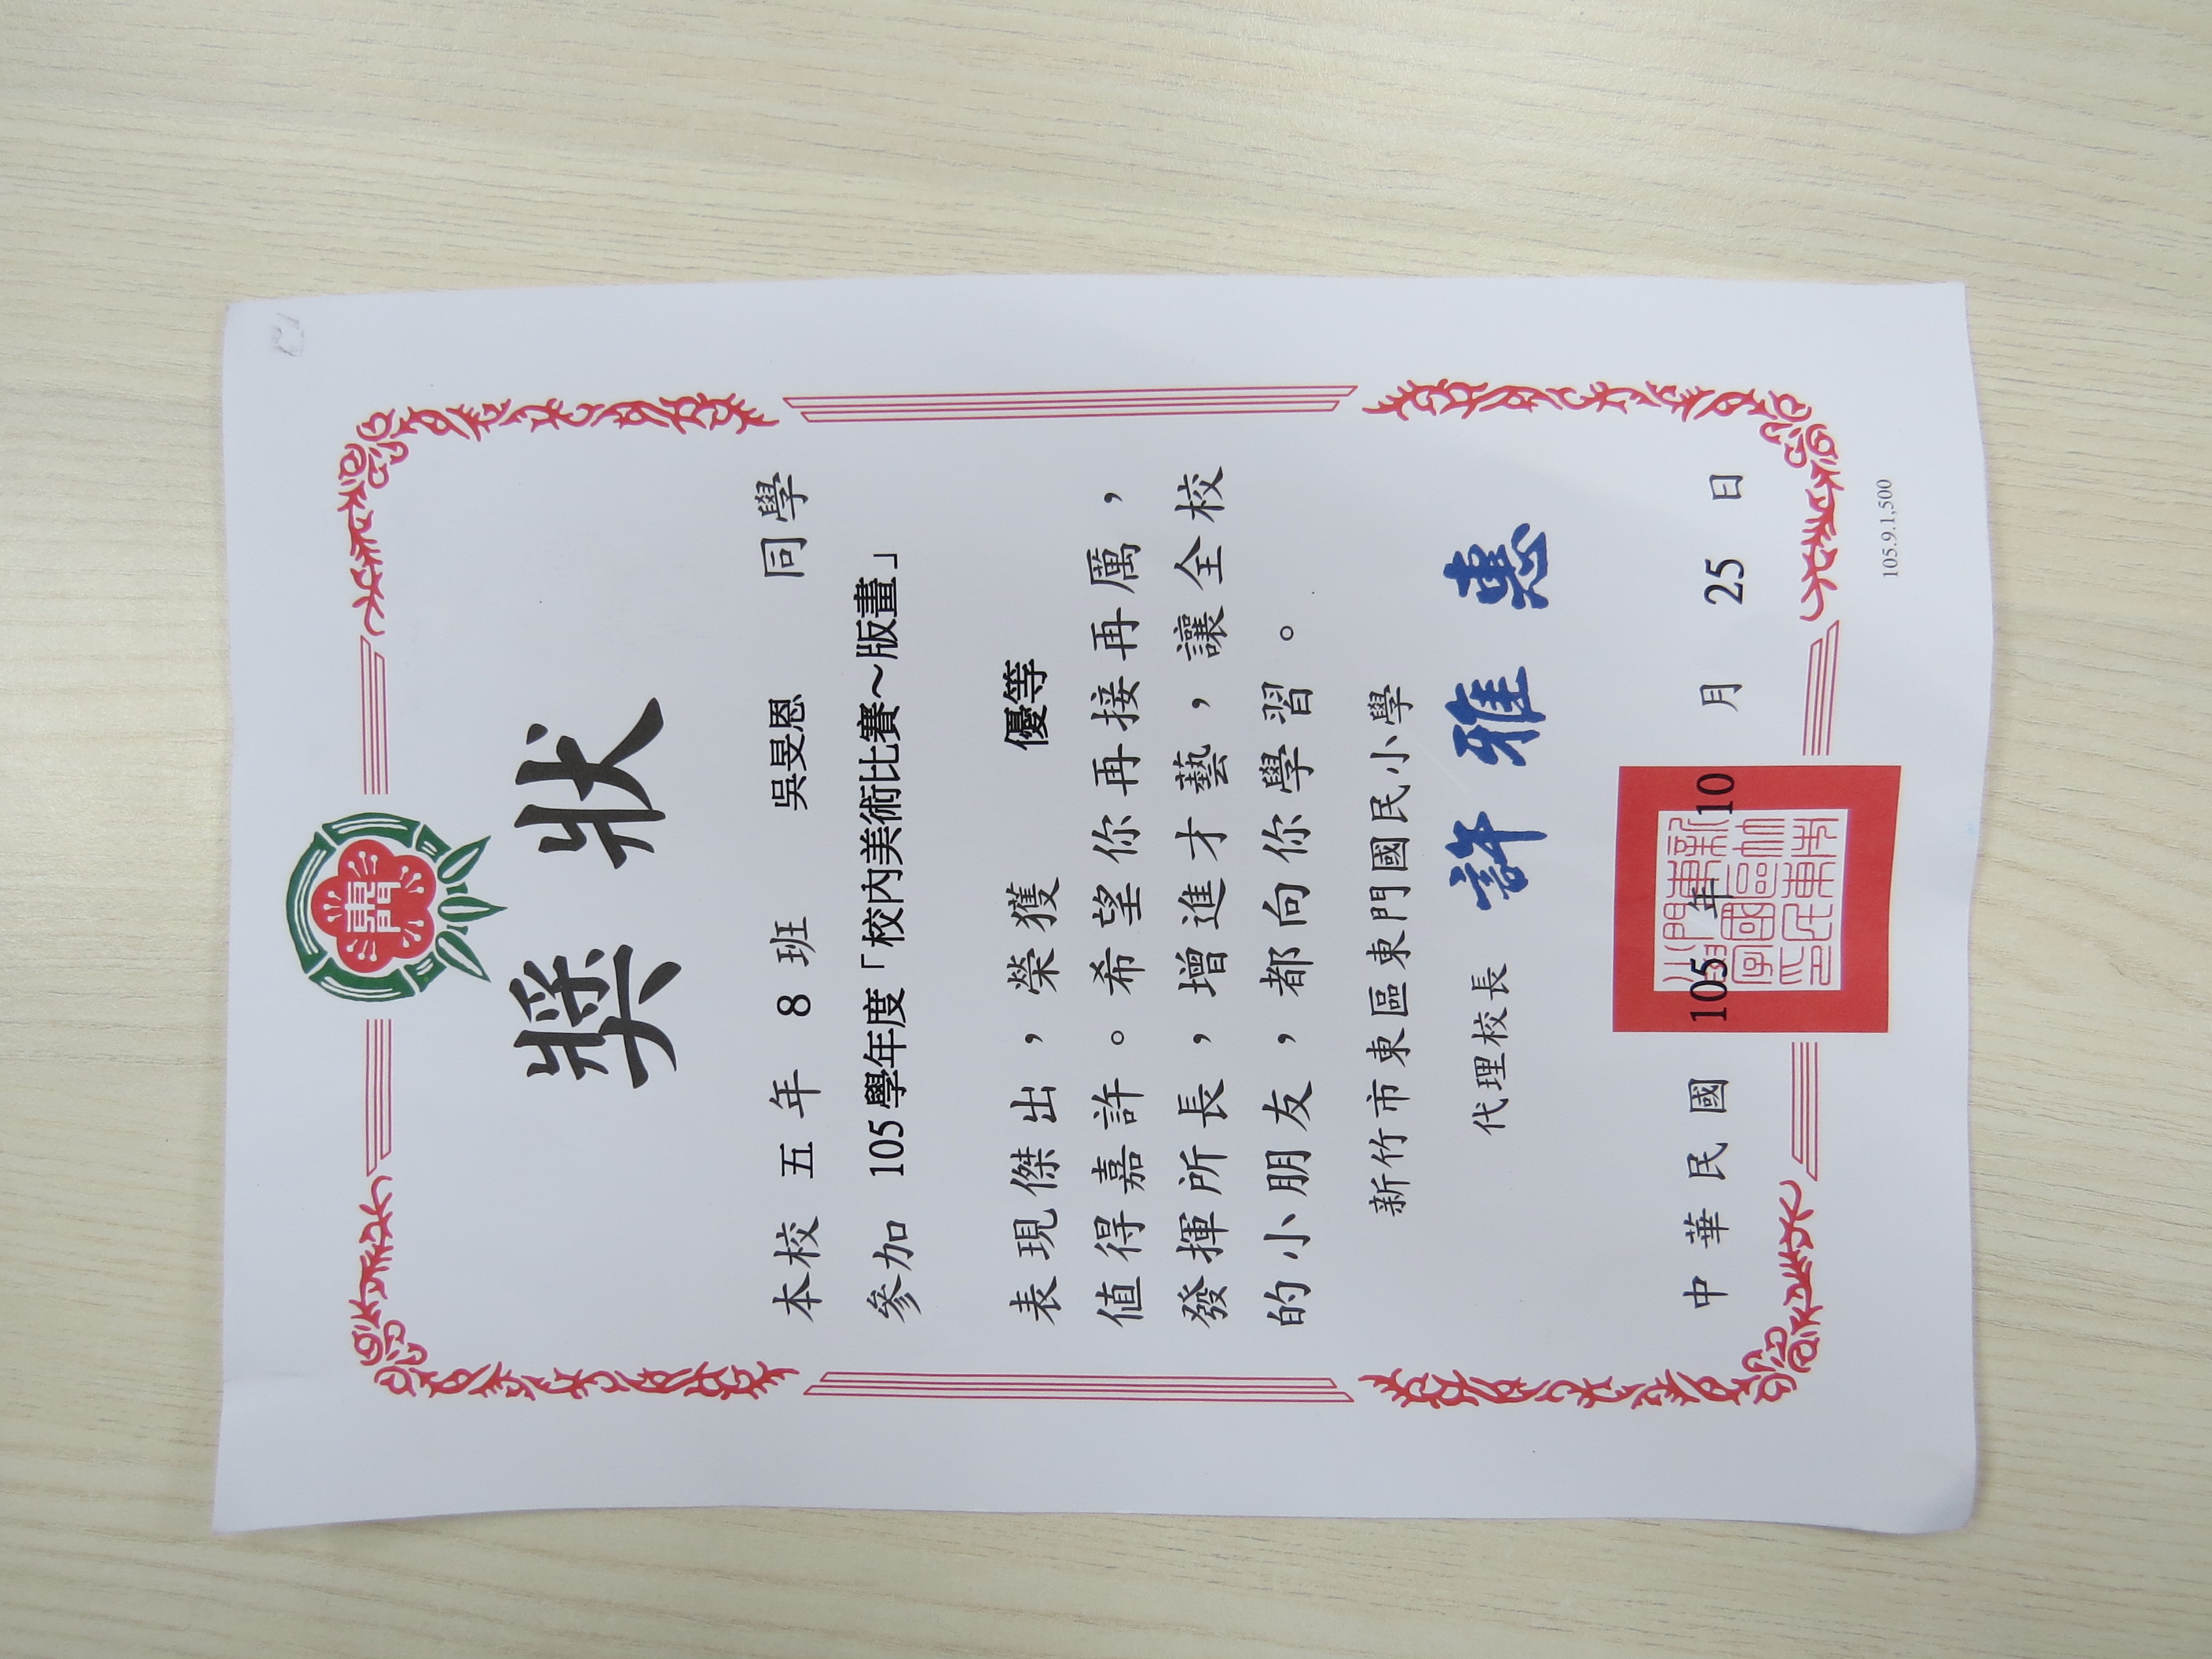 東門
獎狀
本校 五 年 8 班 吳旻恩 同學
參加 105 學年度「校內美術比賽～版畫」
優等
表現傑出，榮獲
值得嘉許。希望你再接再厲，
發揮所長，增進才藝，讓全校
的小朋友，都向你學習。
新竹市東區東門國民小學
代理校長 許雅惠
中華民國 105 年 10 月 25 日
105.9.1,500